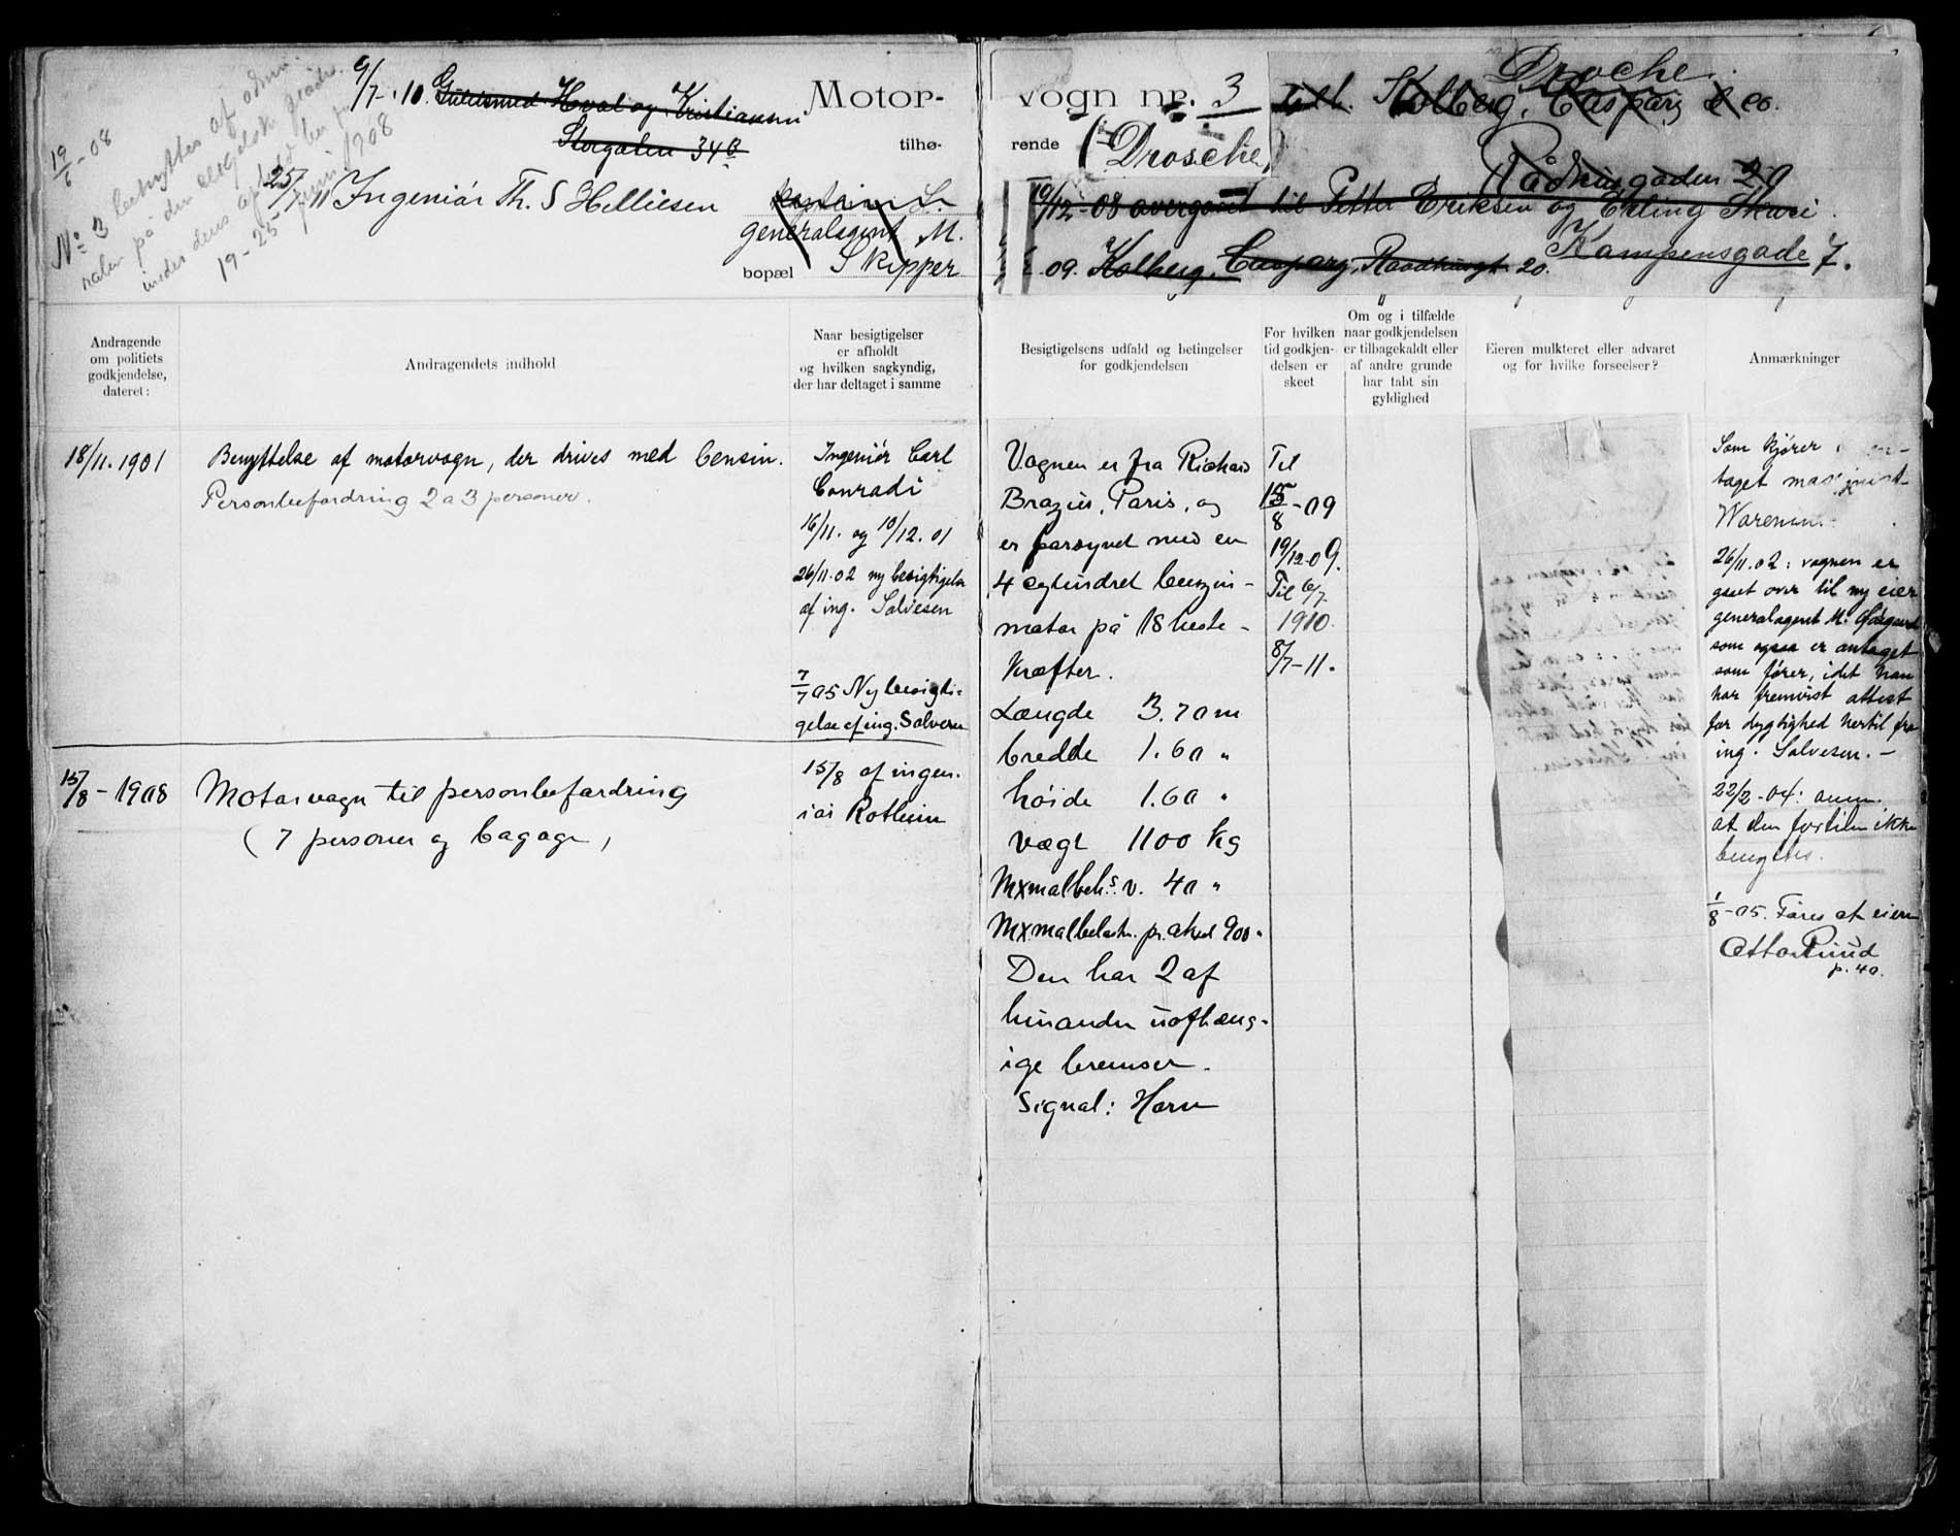 19/6-08
No 3 benyttes af
19-25 juni 1908
9/7-10. Guldsmed Hval og Kristiansen
Storgaten 34 B
25/7 11 Ingeniör Th. S Helliesen
Motor-
tilhø-
generalagent M.
bopæl
Skipper
vogn nr. 3
rende
(Drosche)
Droche
Kolberg, Caspary & Co.
Rådhusgaden 20
19/12-08 overgaaet til Petter Eriksen og Erling Skari
Kampensgade 7.
09. Kolberg, Caspary, Raadhusgt 20.
Andragende
om politiets
godkjendelse,
dateret:
Andragendets indhold
Naar besigtigelser
er afholdt
og hvilken sagkyndig,
der har deltaget i samme
Besigtigelsens udfald og betingelser
for godkjendelsen
For hvilken
tid godkjen-
delsen er
skeet
Om og i tilfælde
naar godkjendelsen
er tilbagekaldt eller
af andre grunde
har tabt sin
gyldighed
Eieren mulkteret eller advaret
og for hvilke forseelser?
Anmærkninger
18/11. 1901
Benyttelse af motorvogn, der drives med bensin.
Personbefordring 2 a 3 personer.
Ingeniör Carl
Conradi
16/11. og 10/12. 01
26/11.02 ny besigtigelse
af ing. Salvesen
7/7 05 Ny besigti-
gelse af ing. Salvesen
15/8 - 1908
Motorvogn til personbefordring
(7 personer og bagage)
15/8 af ingen-
iör Rotheim
Vognen er fra Richard
Brazier, Paris, og
er forsynet med en
4 cylindret benzin-
motor på 18 heste-
kræfter.
Længde 3.70 m
bredde 1.60 "
höide 1.60 "
vægt 1100 kg
Mxmalbels. v. 40 "
Mxmalbelastn. pr. aksel 900 "
Den har 2 af
hinanden uafhæng-
ige bremser.
Signal: Horn
Til
15/8-09
19/12.09.
Til 6/7.
1910.
8/7-11.
Som kjører
taget maskinist
26/11.02: vognen er
gaaet over til ny eier
generalagent M.
som ogsaa er antaget
som fører, idet han
har fremvist attest
for dygtighed hertil fra
ing. Salvesen. -
22/2-04: anm.
at den fortiden ikke
benyttes.
1/8-05. Føres af eieren
Otto Ruud
p. 40.